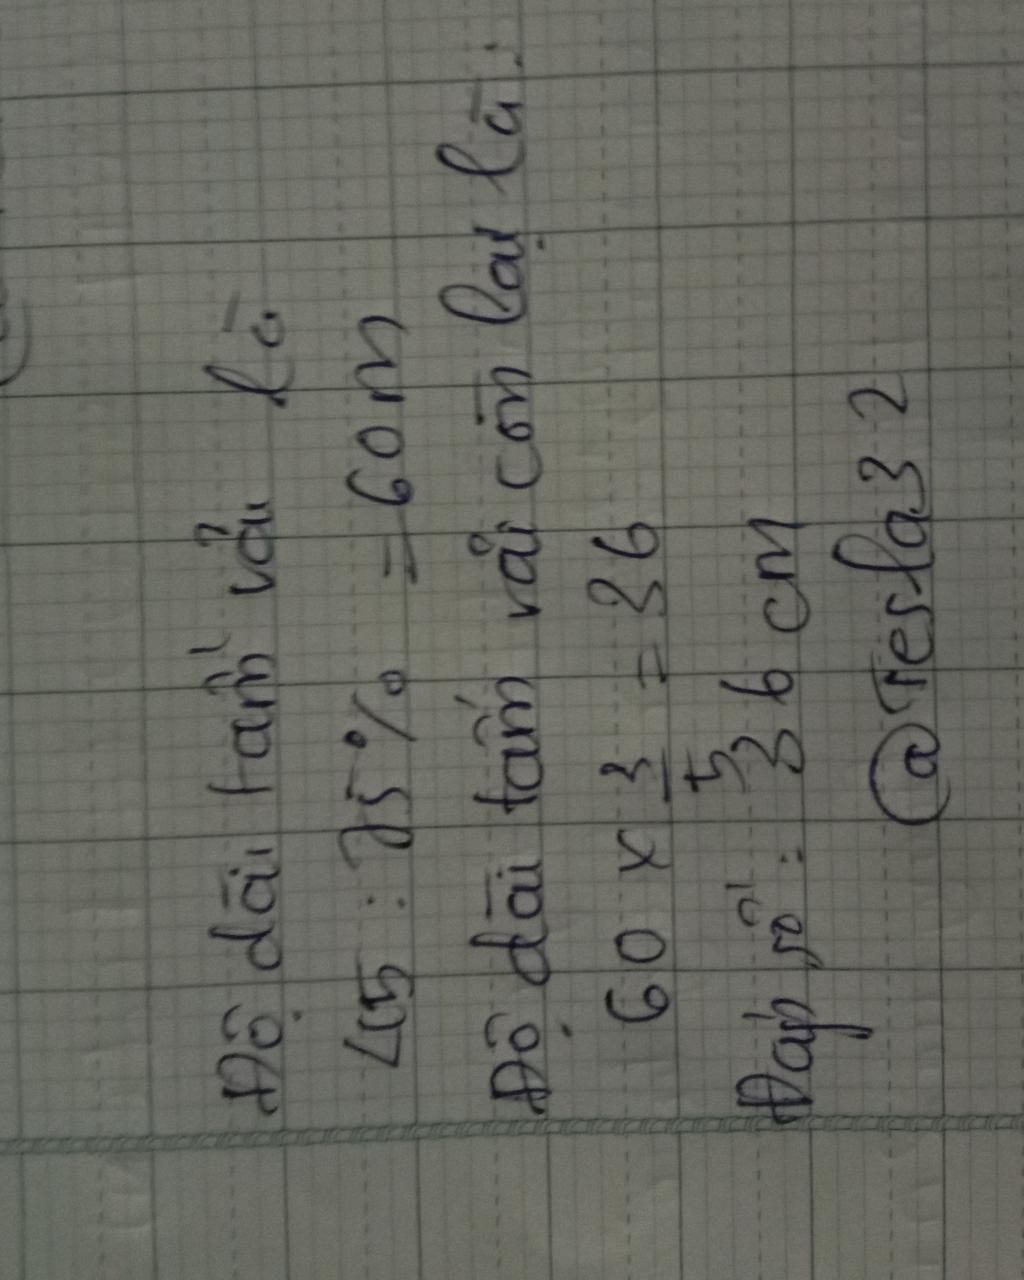 Độ dài tấm vải là
45 : 75% = 60m
Độ dài tấm vải còn lại là:
60 x 3/5 = 36
Đáp số: 36cm
@Tesla32